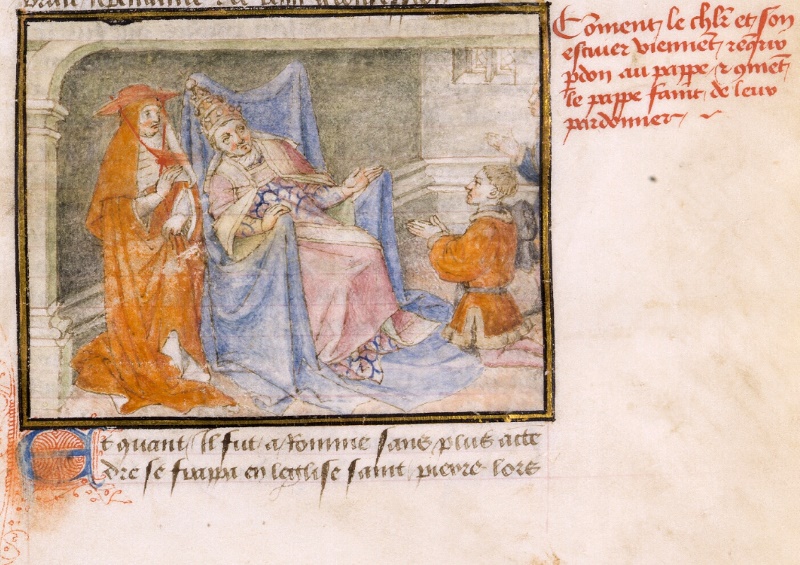 Coment le chlr et son
escuier viennēt reqrir
pdon au pappe & cōmēt
le pappe faint de leur
pardonner
Et quant il fut a Romme sans plus atte
dre se frappa en leglise saint pierre lors